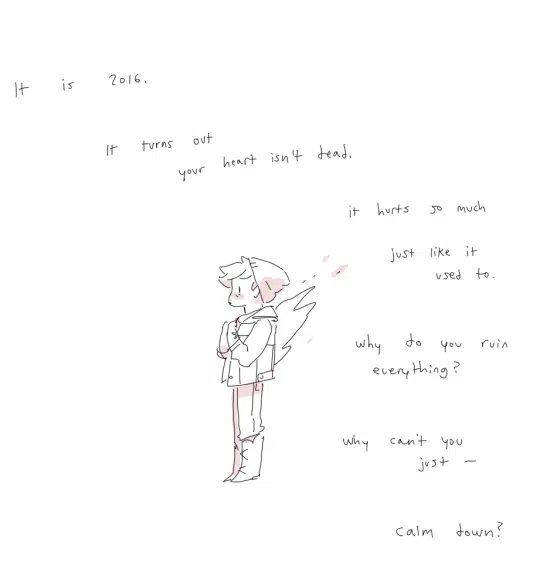 It is 2016.
It turns out
your heart isn't dead.
it hurts so much
just like it
used to.
why do you ruin
everything?
why can't you
just —
calm down?